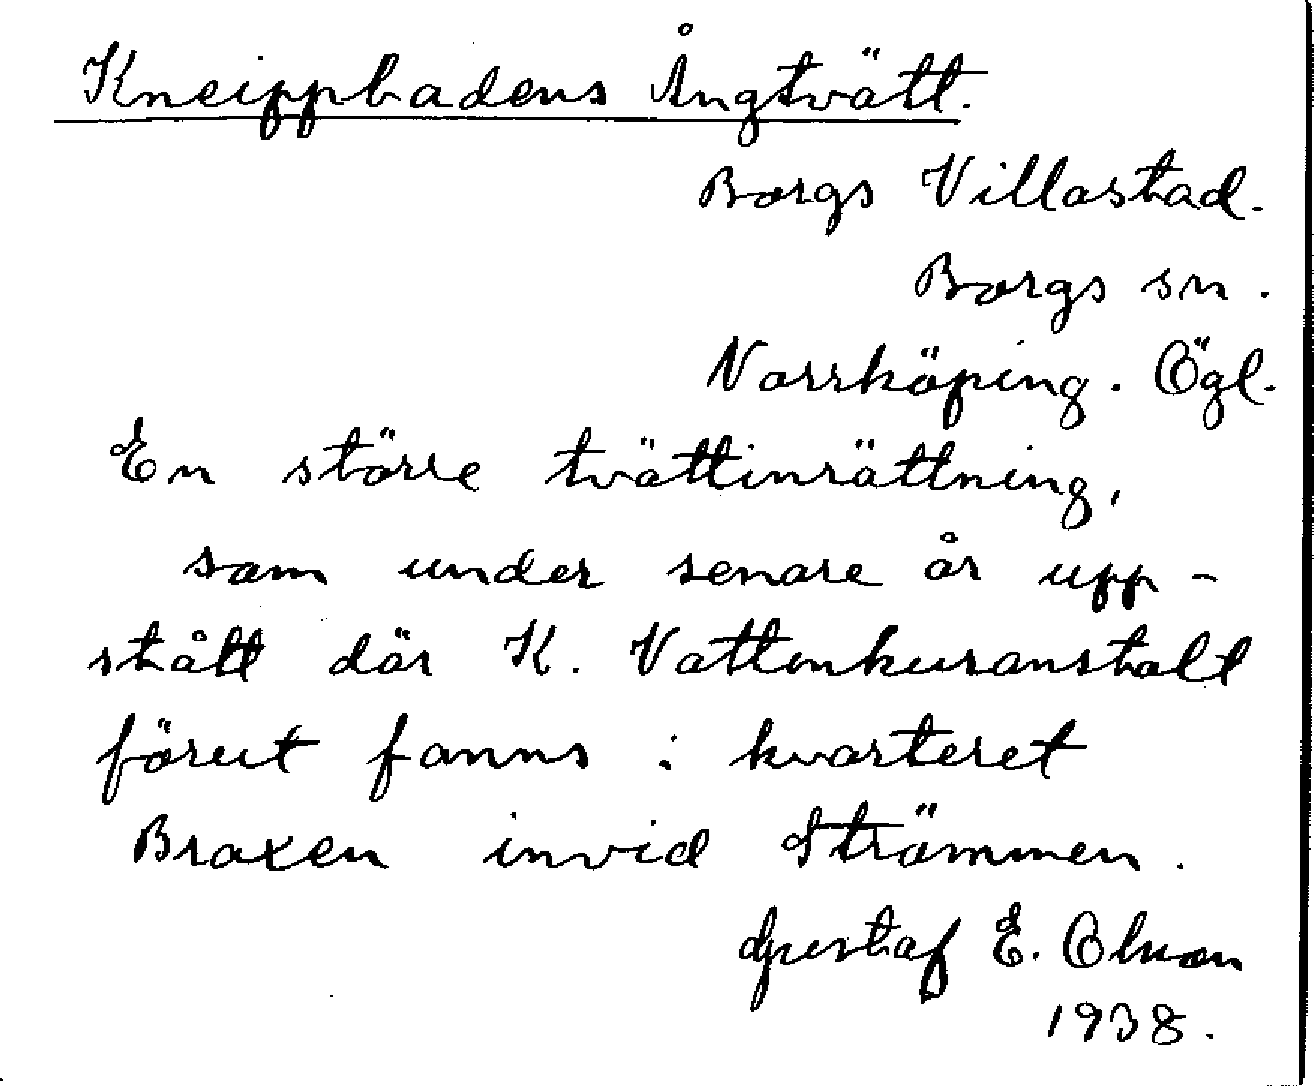 Kneippbadens Ångtvätt.
Borgs Villastad.
Borgs sn.
Norrköping. Ögl.
En större tvättinrättning,
som under senare år upp-
stått där K. Vattenkuranstalt
förut fanns i kvarteret
Braxen invid Strömmen.
Gustaf E. Olson
1938.